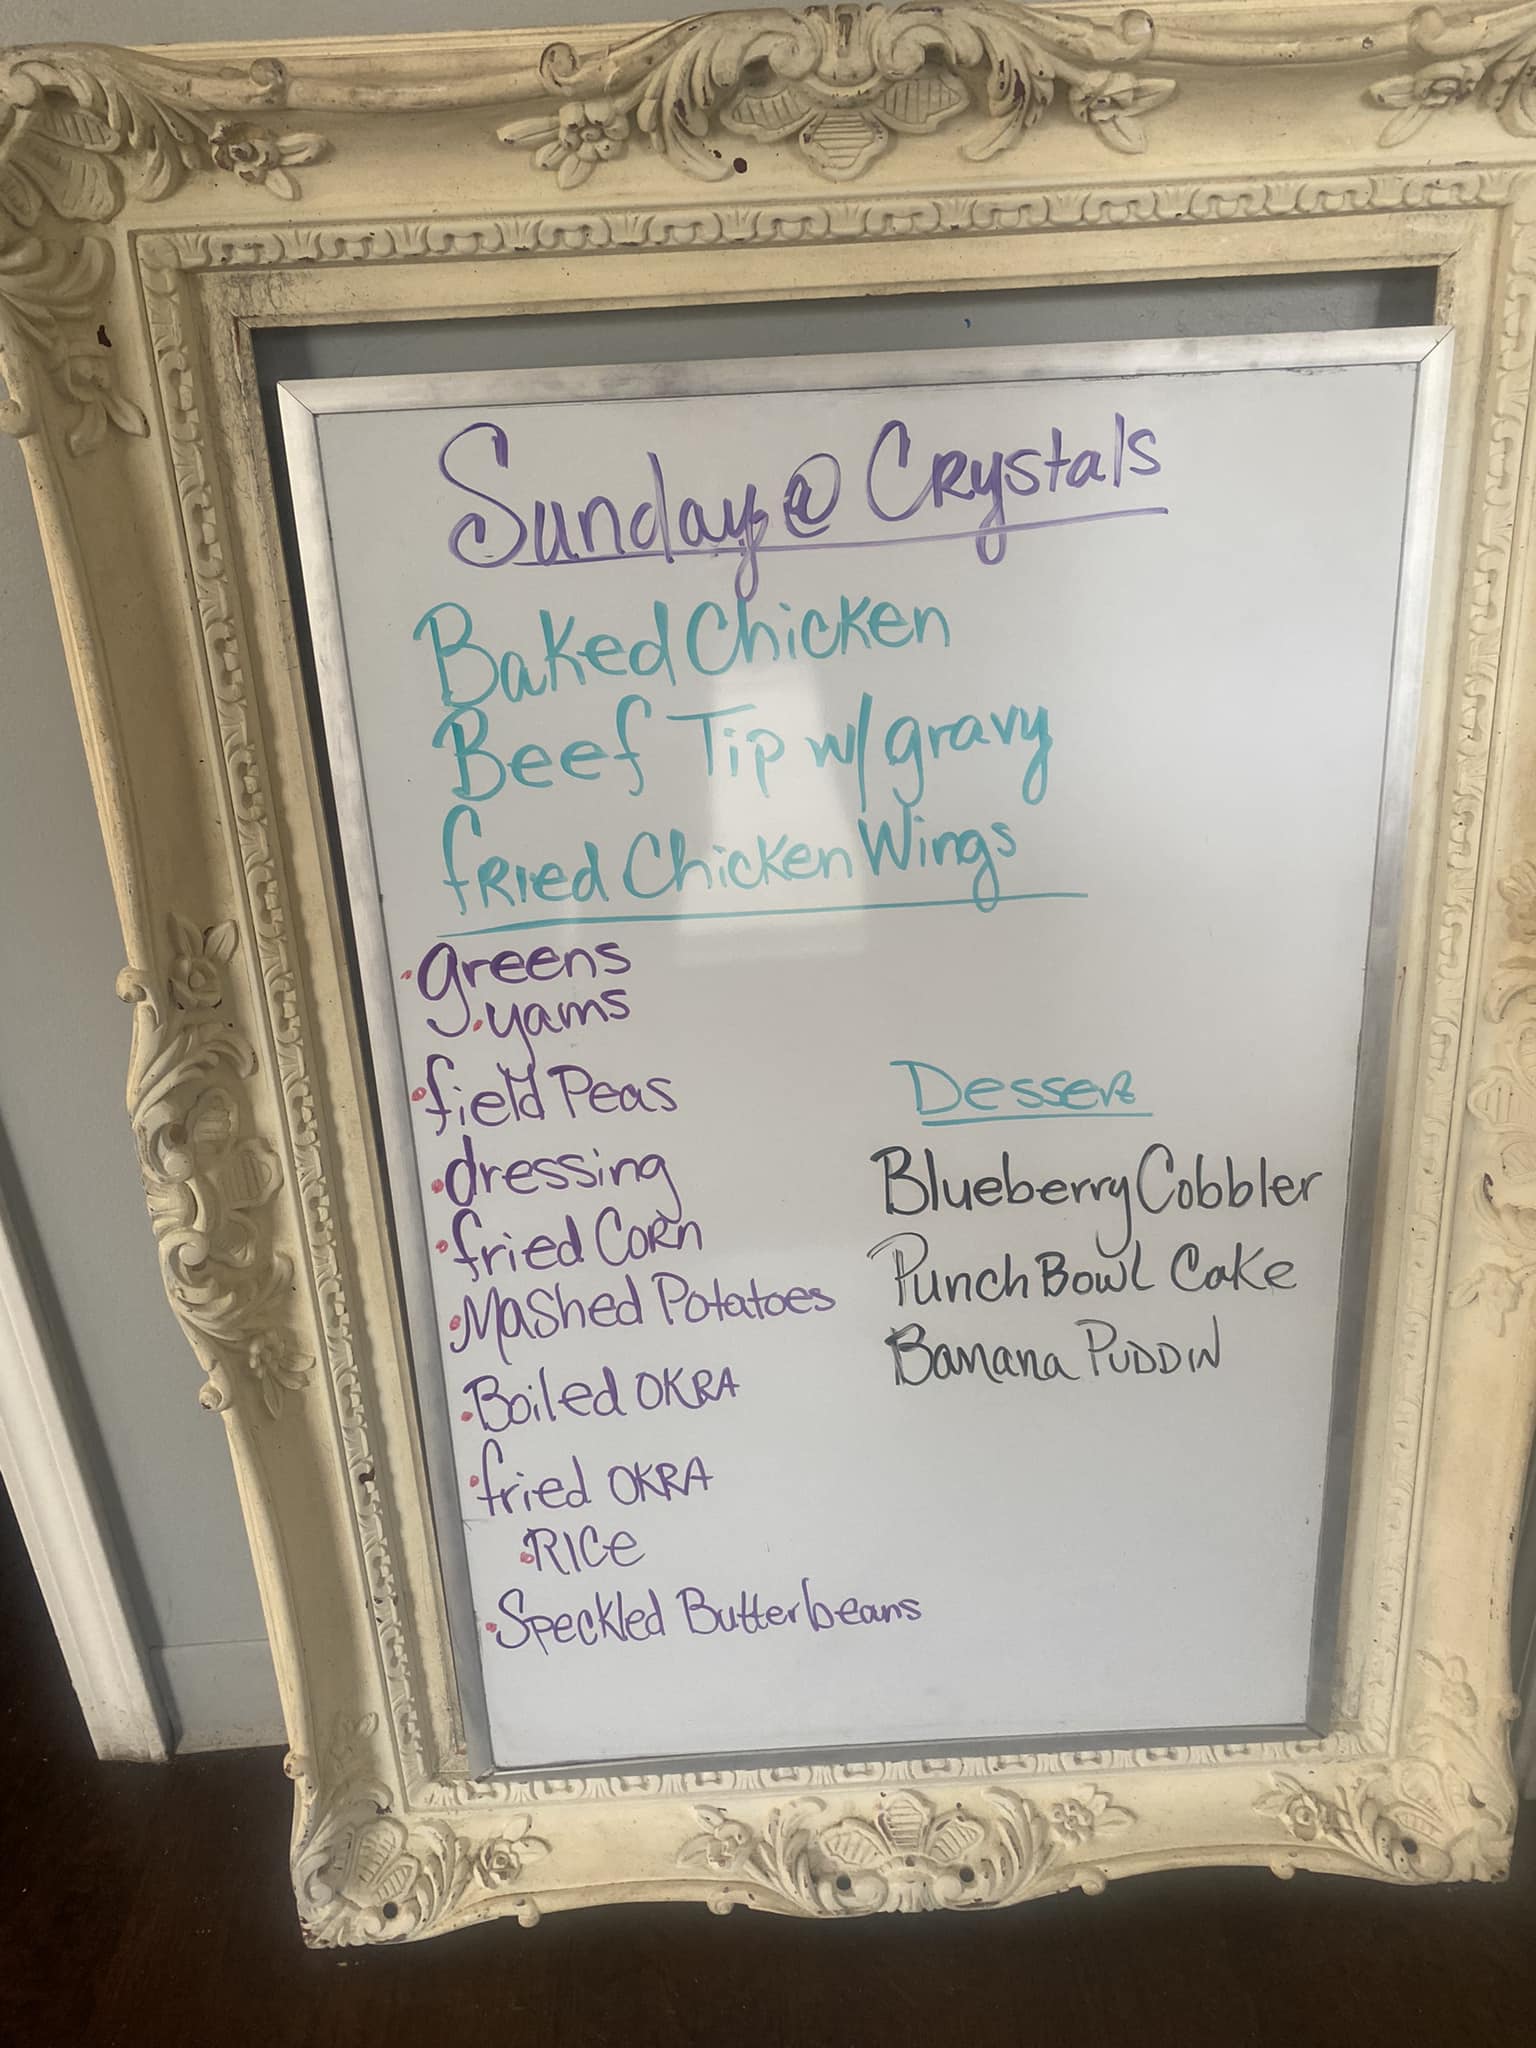 Sunday @ Crystals
Baked Chicken
Beef Tip w/ gravy
fRied Chicken Wings
• greens
• yams
• field Peas
• dressing
• fried CoRn
• MaShed Potatoes
• Boiled OKRA
• fried OKRA
• RICe
• Speckled Butterbeans
Dessert
Blueberry Cobbler
Punch Bowl Cake
Banana PUDDIN